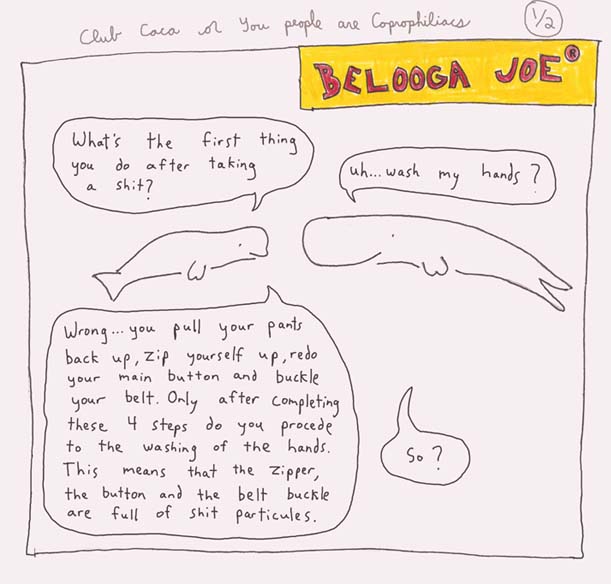 Club Caca or You people are Coprophiliacs
1/2
BELOOGA JOE®
What's the first thing
you do after taking
a shit?
uh...wash my hands?
Wrong...you pull your pants
back up, zip yourself up, redo
your main button and buckle
your belt. Only after completing
these 4 steps do you procede
to the washing of the hands.
This means that the zipper,
the button and the belt buckle
are full of shit particules.
So?